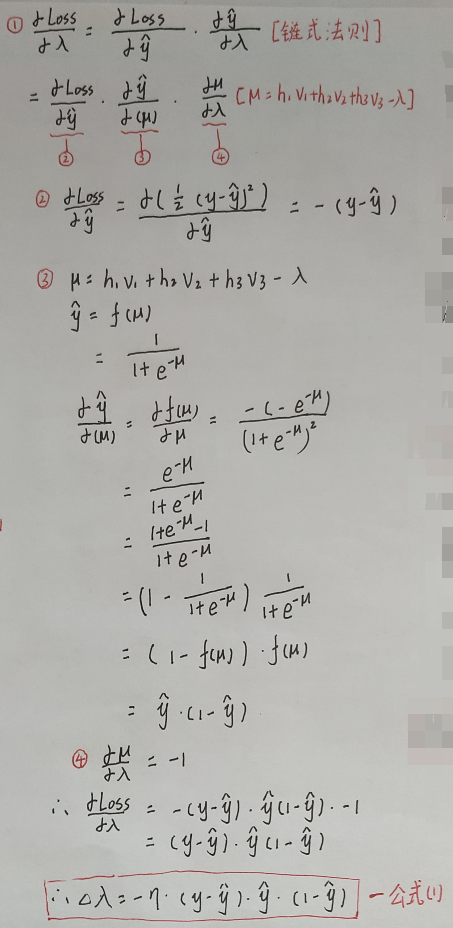 ① ∂Loss/∂λ = ∂Loss/∂ŷ · ∂ŷ/∂λ [链式法则]
= ∂Loss/∂ŷ · ∂ŷ/∂(μ) · ∂μ/∂λ [μ = h₁v₁+h₂v₂+h₃v₃-λ]
② ③ ④
② ∂Loss/∂ŷ = ∂(½(y-ŷ)²)/∂ŷ = -(y-ŷ)
③ μ = h₁v₁ + h₂v₂ + h₃v₃ - λ
ŷ = f(μ)
= 1/(1+e^(-μ))
∂ŷ/∂(μ) = ∂f(μ)/∂μ = -(-e^(-μ))/(1+e^(-μ))²
= e^(-μ)/(1+e^(-μ))
= (1+e^(-μ)-1)/(1+e^(-μ))
= (1 - 1/(1+e^(-μ))) 1/(1+e^(-μ))
= (1-f(μ))·f(μ)
= ŷ·(1-ŷ)
④ ∂μ/∂λ = -1
∴ ∂Loss/∂λ = -(y-ŷ)·ŷ(1-ŷ)·-1
= (y-ŷ)·ŷ(1-ŷ)
∴ △λ = -η·(y-ŷ)·ŷ·(1-ŷ) —公式(1)